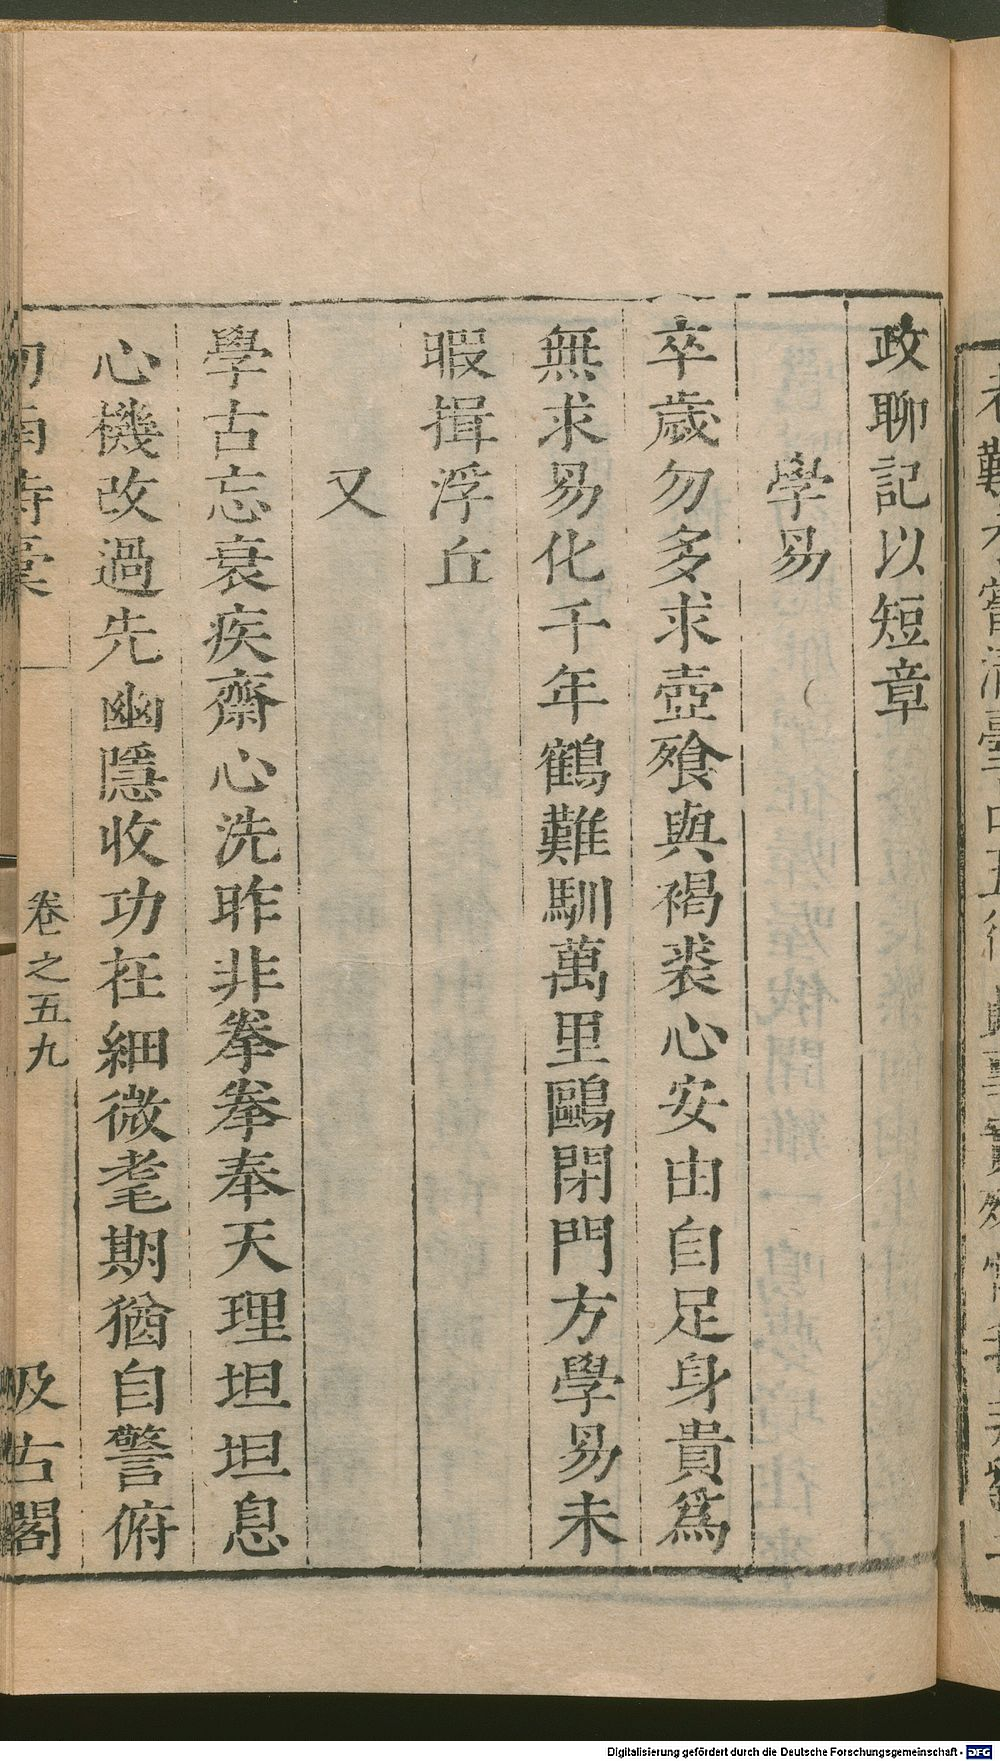 政聊記以短章
學易
卒歲勿多求壺飱與褐裘心安由自足身貴爲
無求易化千年鶴難馴萬里鷗閉門方學易未
暇揖浮丘
又
學古忘衰疾齋心洗昨非拳拳奉天理坦坦息
心機改過先幽隱收功在細微耄期猶自警俯
南詩稾
卷之五九
汲古閣
Digitalisierung gefördert durch die Deutsche Forschungsgemeinschaft - DFG